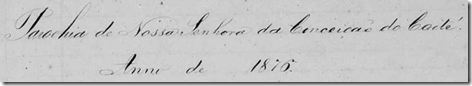 Parochia de Nossa Senhora da Conceição do Coité.
Anno de 1876.